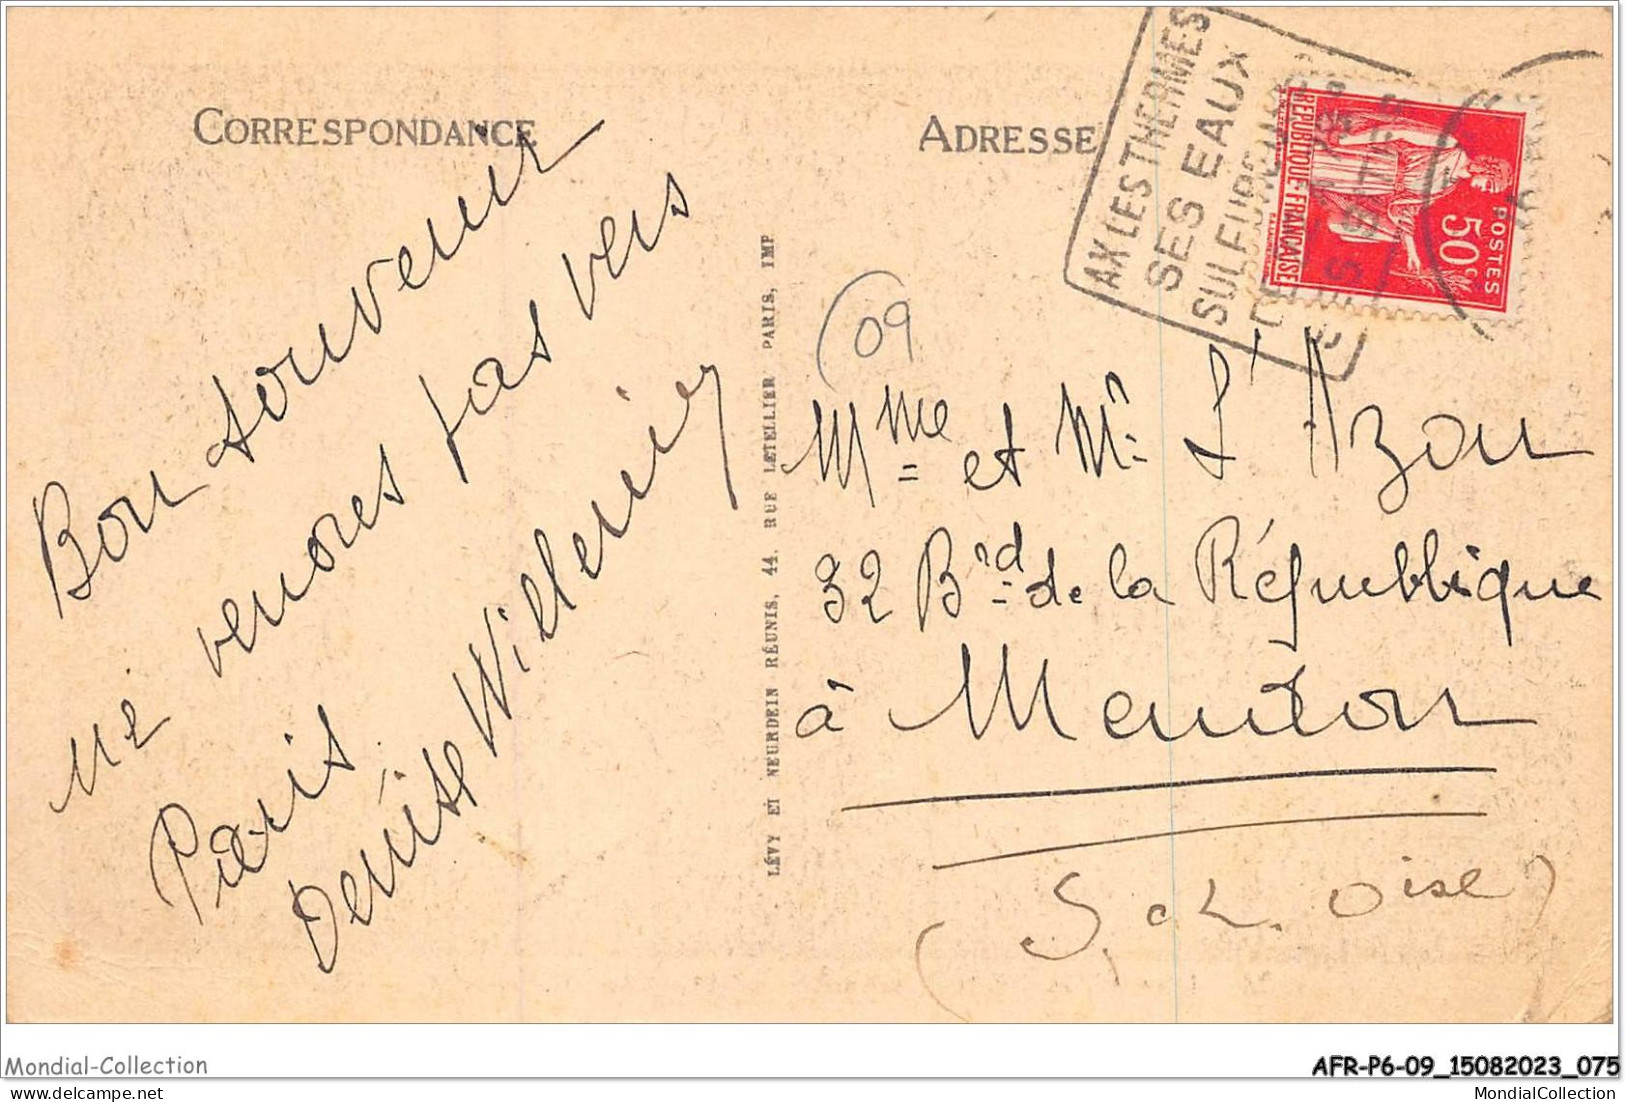 CORRESPONDANCE
Bon souvenir
ne venons pas vers
Paris.
Denise Willemin
LÉVY ET NEURDEIN RÉUNIS, 44, RUE LETELLIER PARIS, IMP
ADRESSE
AX LES THERMES
SES EAUX
SULFUREUSES
REPUBLIQUE·FRANÇAISE
POSTES
50 c
09
Mme et Mr L' Azou
32 Brd de la République
à Menton
(S. et. Oise)
Mondial-Collection
AFR-P6-09_15082023_075
MondialCollection